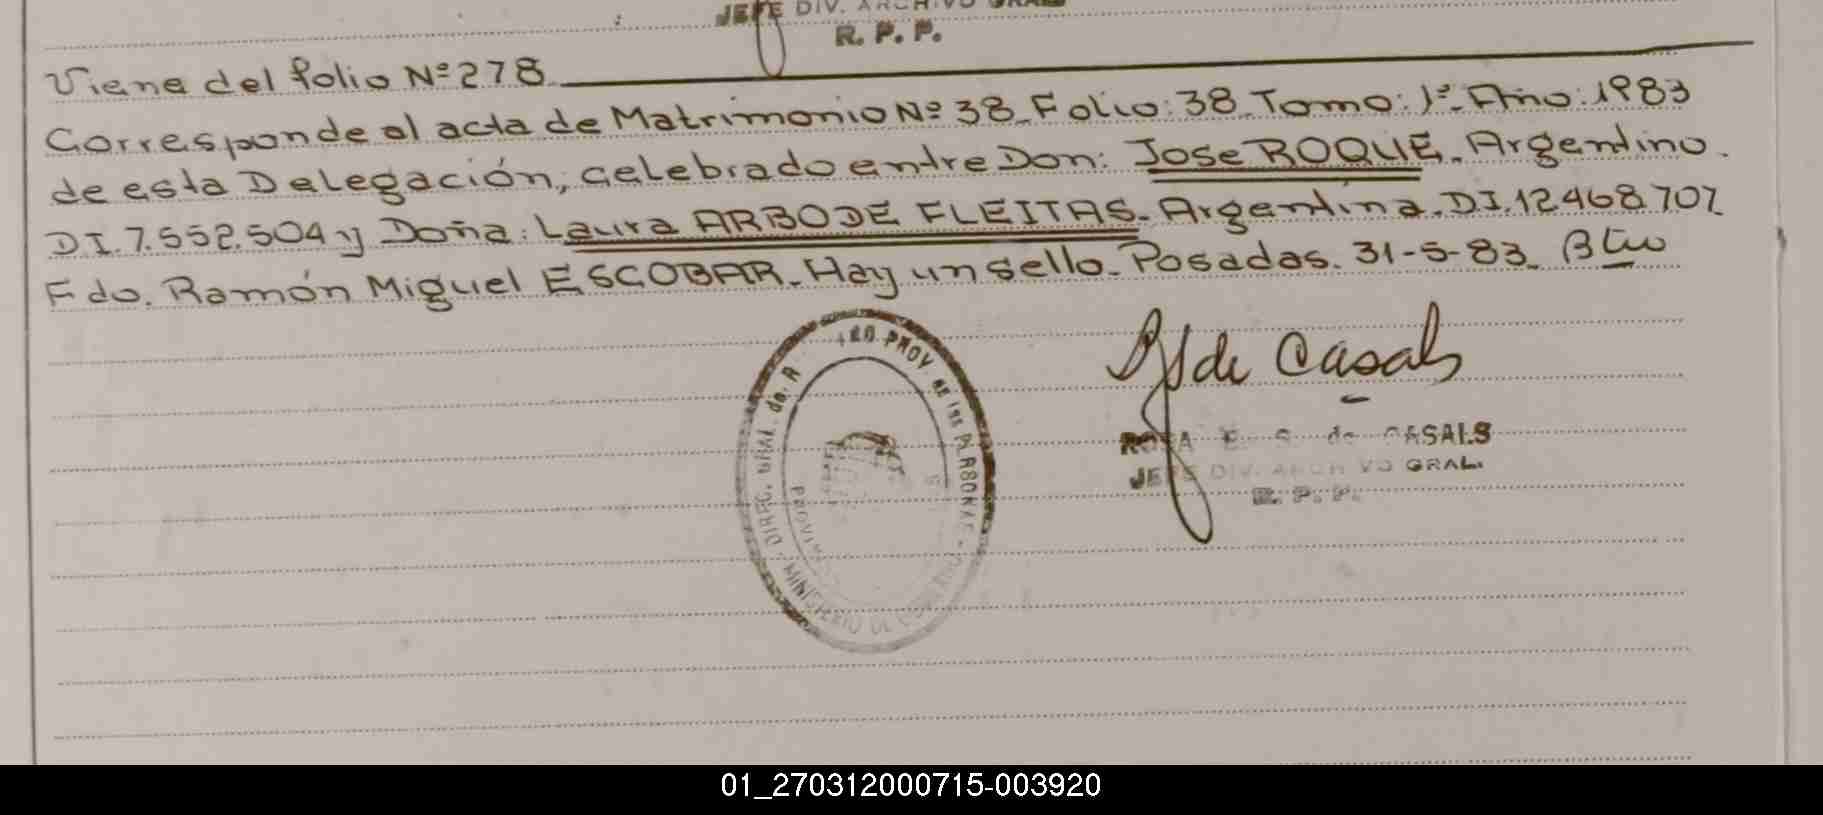 JEFE DIV. ARCHIVO GRAL
R. P. P.
Viene del folio Nº 278
Corresponde al acta de Matrimonio Nº 38. Folio: 38. Tomo: 1º. Año: 1983
de esta Delegación, celebrado entre Don: Jose ROQUE. Argentino.
DI. 7.552.504 y Doña: Laura ARBODE FLEITAS. Argentina. DI. 12468707
Fdo. Ramón Miguel ESCOBAR. Hay un sello. Posadas. 31-5-83.
de Casals
DIREC. GRAL. de R PROV. de las PERSONAS
MINISTERIO DE
ROSA E. S. de CASALS
JEFE DIV. ARCHIVO GRAL.
R. P. P.
01_270312000715-003920